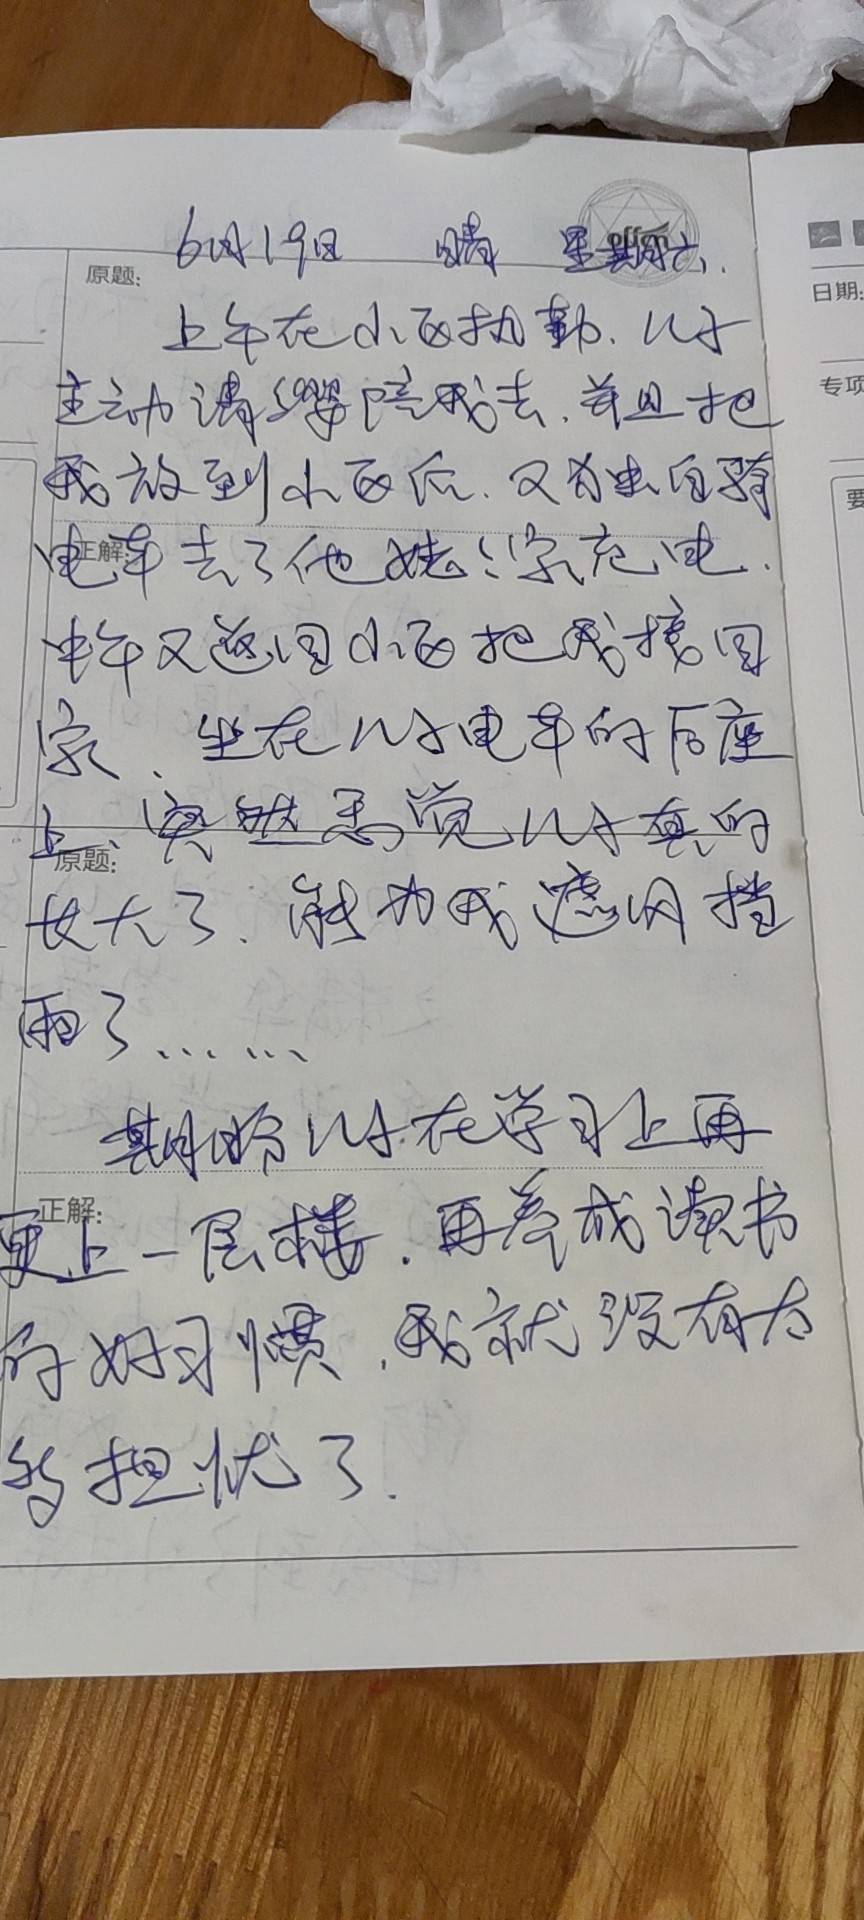 6月19日 晴 星期六.
原题:
日期:
上午在小区执勤. 儿子
专项
主动请缨陪我去. 并且把
我放到小区后. 又独自骑
要
正解:
电车去了他姥姥家充电.
中午又返回小区把我接回
家、坐在儿子电车的后座
上、突然感觉儿子真的
原题:
长大了. 能为我遮风挡
雨了……
期盼儿子在学习上再
正解:
更上一层楼. 再养成读书
的好习惯. 我就没有太
多担忧了.